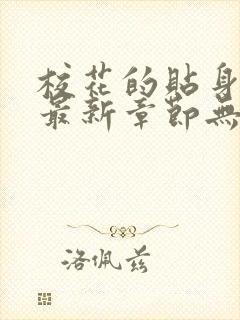 校花的贴身
最新章節無
洛佩兹